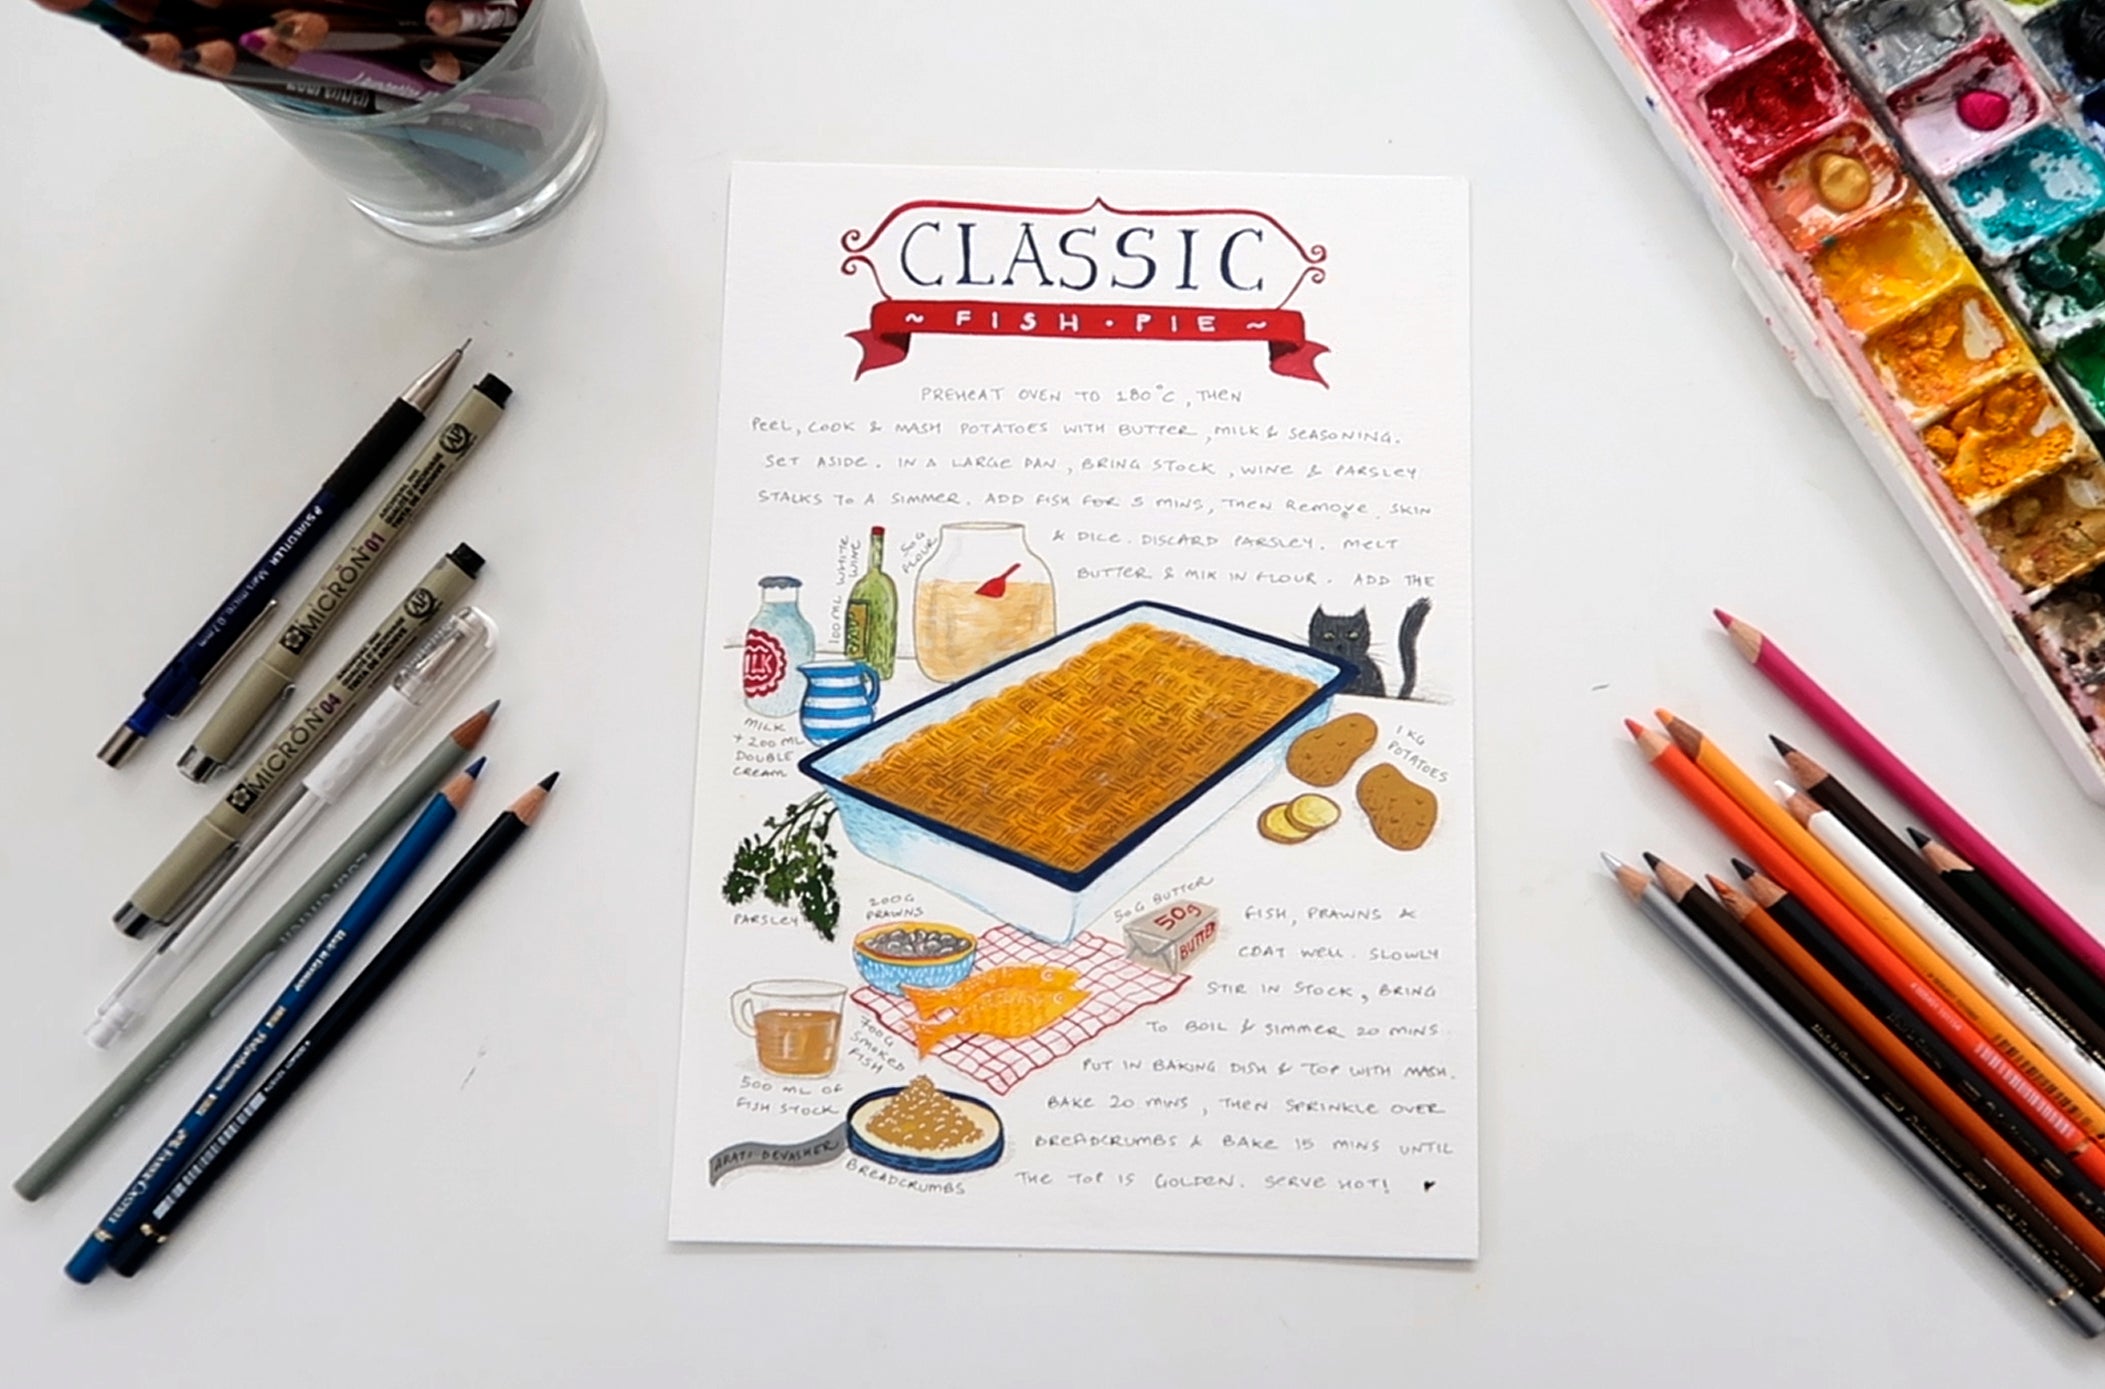 CLASSIC
~ FISH · PIE ~
PREHEAT OVEN TO 180°C, THEN
PEEL, COOK & MASH POTATOES WITH BUTTER, MILK & SEASONING.
SET ASIDE. IN A LARGE PAN, BRING STOCK, WINE & PARSLEY
STALKS TO A SIMMER. ADD FISH FOR 5 MINS, THEN REMOVE SKIN
& DICE. DISCARD PARSLEY. MELT
BUTTER & MIX IN FLOUR. ADD THE
100 ML WHITE
WINE
50 G
FLOUR
MILK
MILK
+ 200 ML
DOUBLE
CREAM
1 KG
POTATOES
PARSLEY
200G
PRAWNS
50G BUTTER
50g
BUTTER
FISH, PRAWNS &
COAT WELL. SLOWLY
STIR IN STOCK, BRING
TO BOIL & SIMMER 20 MINS
PUT IN BAKING DISH & TOP WITH MASH.
BAKE 20 MINS, THEN SPRINKLE OVER
BREADCRUMBS & BAKE 15 MINS UNTIL
THE TOP IS GOLDEN. SERVE HOT!
700G
SMOKED
FISH
500 ML OF
FISH STOCK
BREADCRUMBS
ARATI DEVASHER
STAEDTLER Mars micro 0.7mm
MICRON 01
MICRON 04